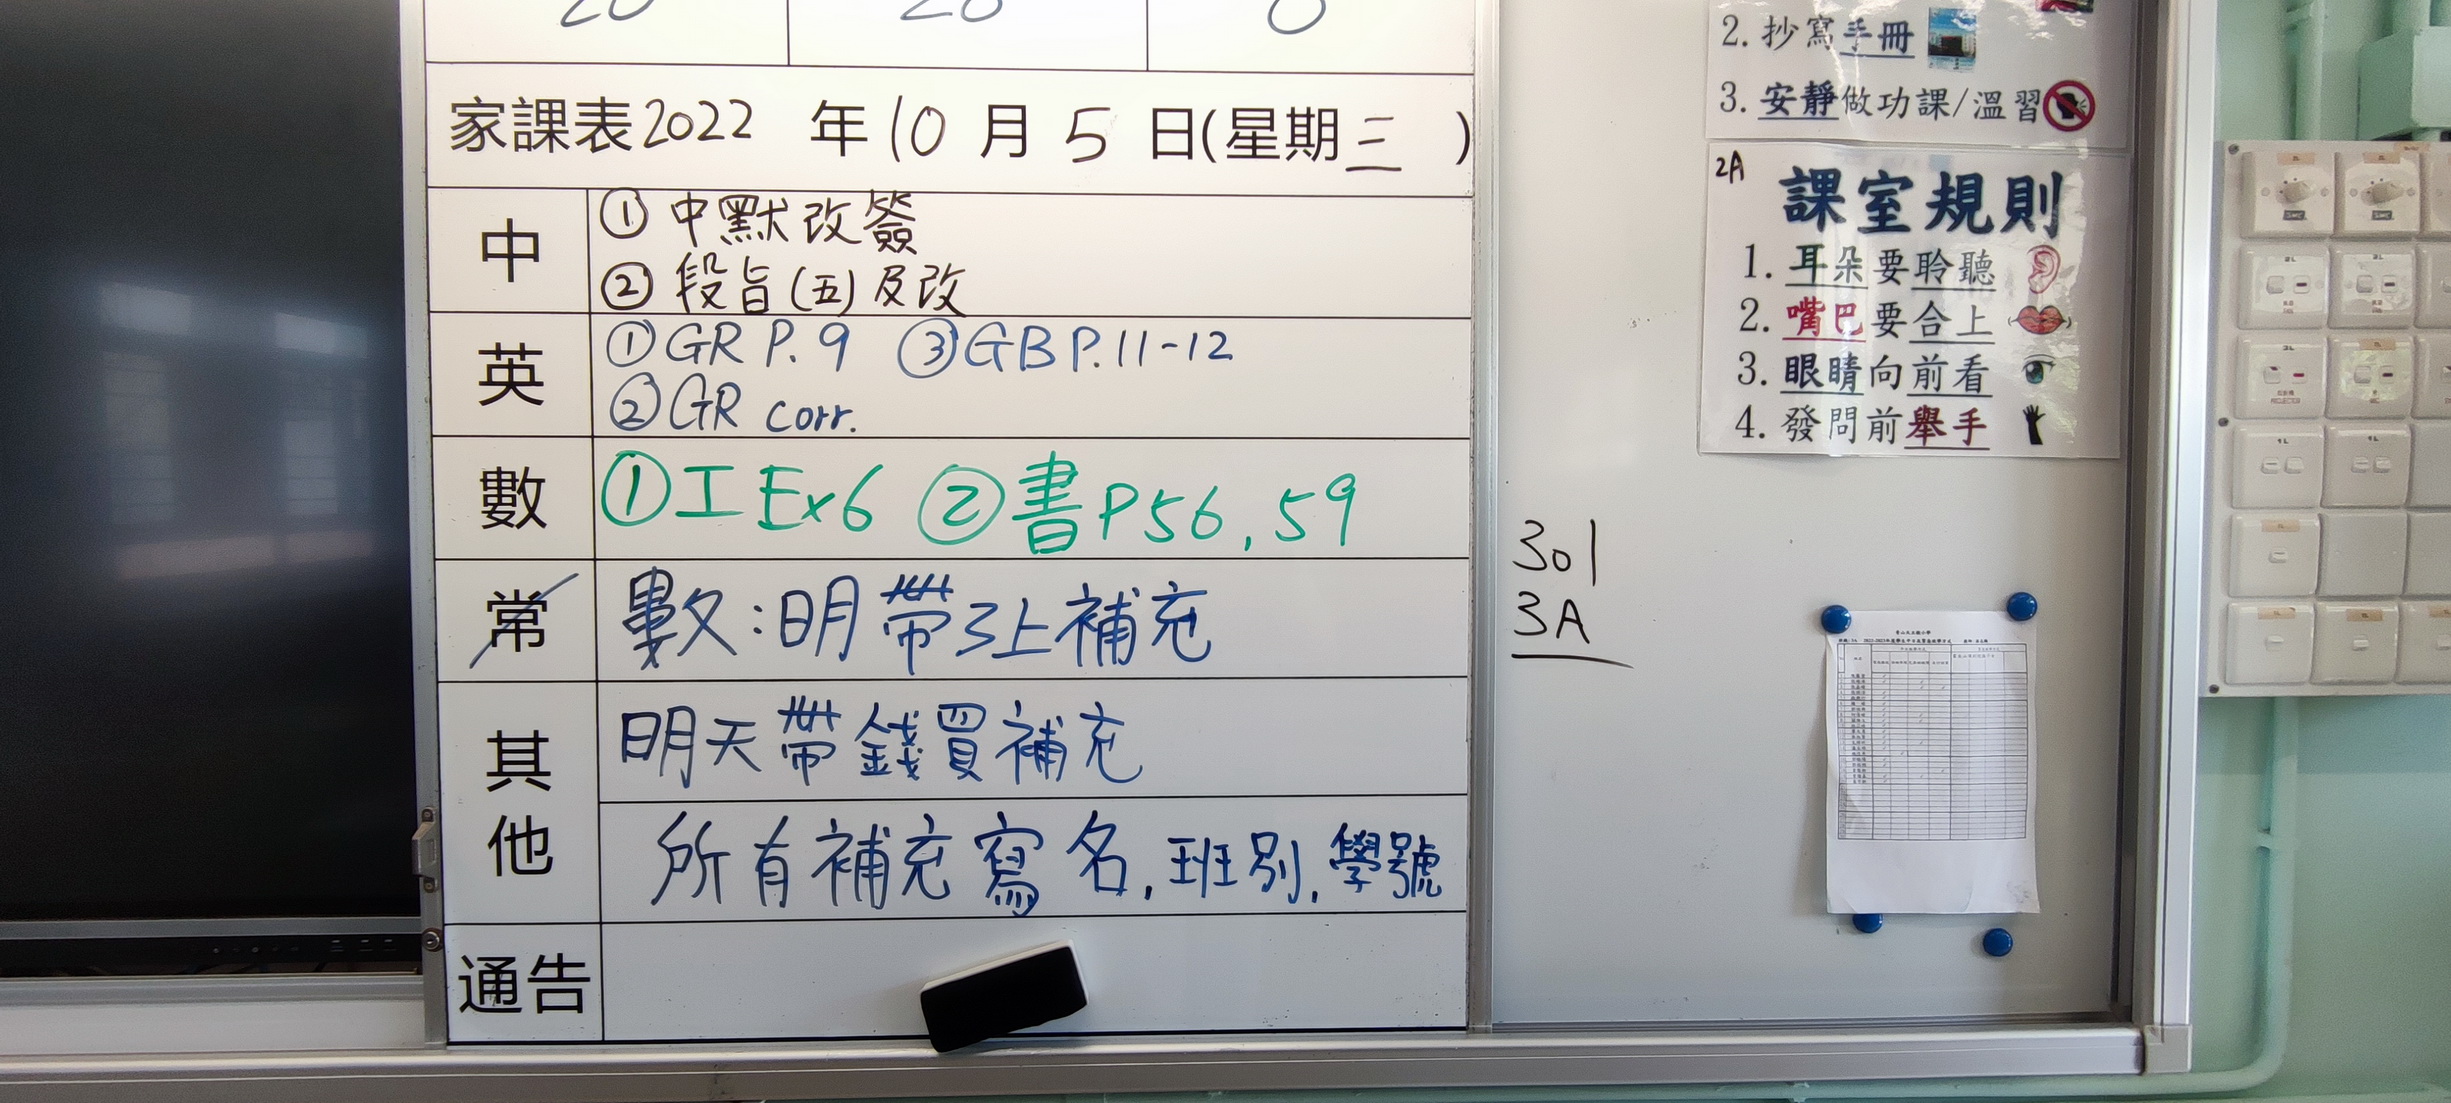 家課表2022 年10月5日(星期三 )
中
① 中默改簽
② 段旨(五)及改
英
①GR P.9 ③GB P.11-12
②GR corr.
數
①工 Ex6 ②書P56,59
常
數:明帶3上補充
其他
明天帶錢買補充
所有補充寫名,班別,學號
通告
2. 抄寫手冊
3. 安靜做功課/溫習
2A
課室規則
1. 耳朵要聆聽
2. 嘴巴要合上
3. 眼睛向前看
4. 發問前舉手
301
3A